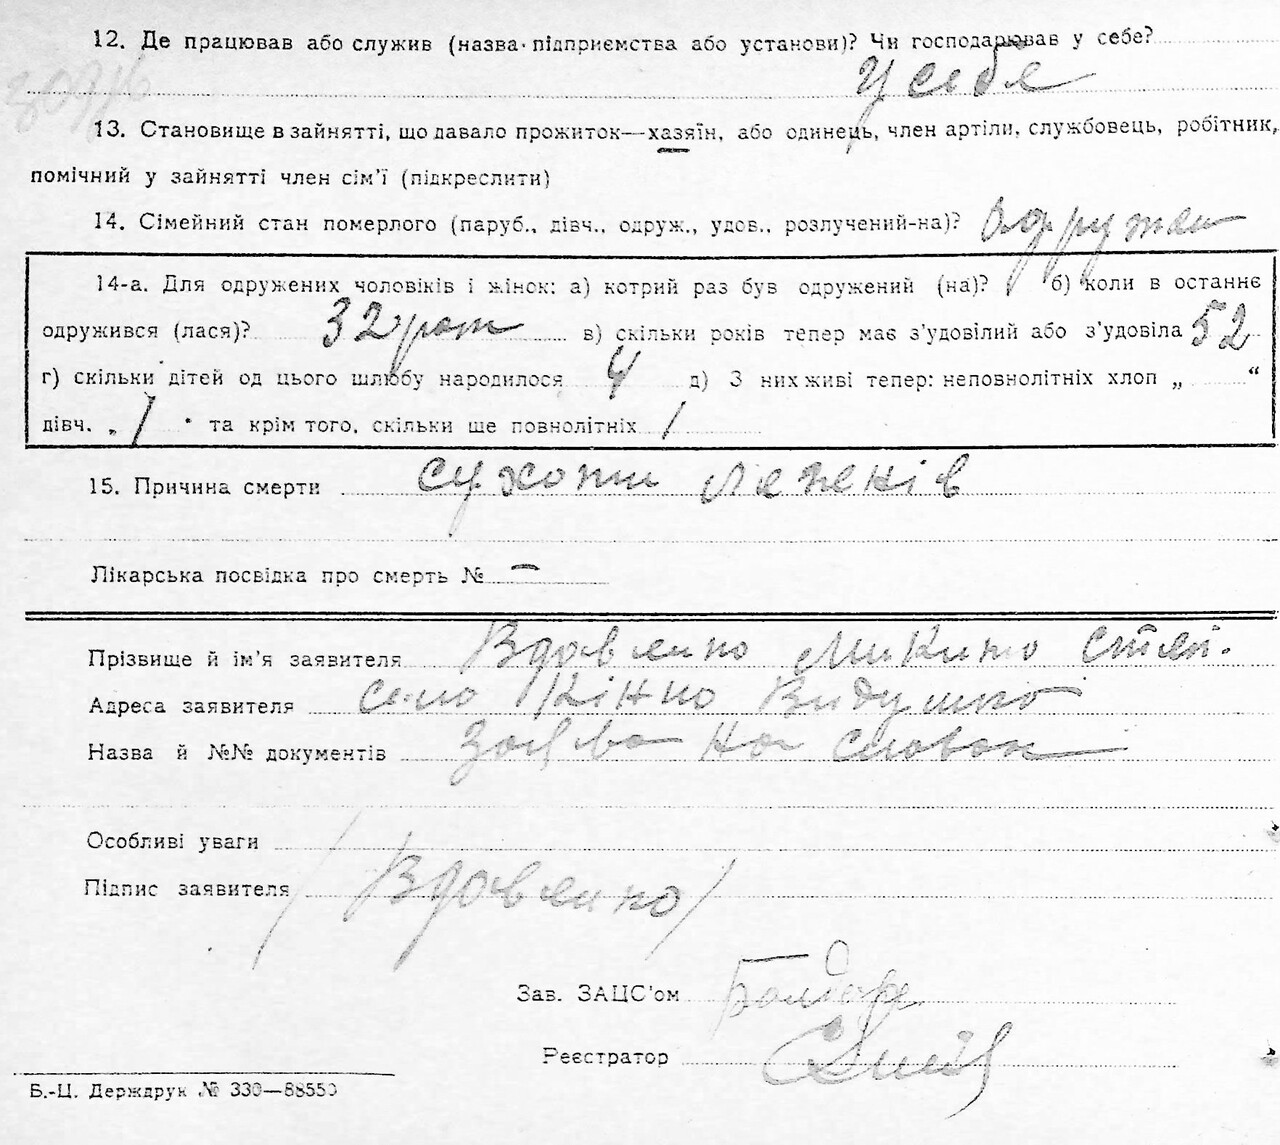 12. Де працював або служив (назва підприємства або установи)? Чи господарював у себе?
у себе
13. Становище в зайнятті, що давало прожиток—хазяїн, або одинець, член артіли, службовець, робітник,
помічний у зайнятті член сім’ї (підкреслити)
14. Сімейний стан померлого (паруб., дівч., одруж., удов., розлучений-на)?
14-а. Для одружених чоловіків і жінок: а) котрий раз був одружений (на)? 1 б) коли в останнє
одружився (лася)? 32 в) скільки років тепер має з’удовілий або з’удовіла 52
г) скільки дітей од цього шлюбу народилося 4 д) З них живі тепер: неповнолітніх хлоп „ “
дівч. „ 1 та крім того, скільки ще повнолітніх 1
15. Причина смерти сухоти легенів
Лікарська посвідка про смерть № —
Прізвище й ім’я заявителя Вдовенко Микита Степ.
Адреса заявителя село
Назва й №№ документів Заява на словах
Особливі уваги
Підпис заявителя /Вдовенко/
Зав. ЗАЦС’ом
Реєстратор
Б.-Ц. Держдрук № 330—88550